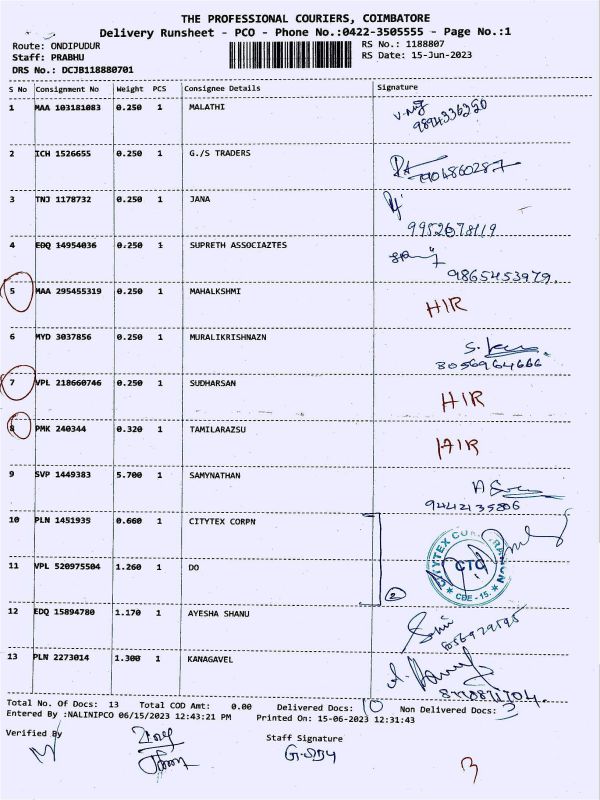 THE PROFESSIONAL COURIERS, COIMBATORE
Delivery Runsheet - PCO - Phone No.:0422-3505555 - Page No.:1
Route: ONDIPUDUR RS No.: 1188807
Staff: PRABHU RS Date: 15-Jun-2023
DRS No.: DCJB118880701
S No Consignment No Weight PCS Consignee Details Signature
1 MAA 103181083 0.250 1 MALATHI
9894336320
2 ICH 1526655 0.250 1 G./S TRADERS
7904860287
3 TNJ 1178732 0.250 1 JANA
9952678119
4 EDQ 14954036 0.250 1 SUPRETH ASSOCIAZTES
9865453979.
5 MAA 295455319 0.250 1 MAHALKSHMI HIR
6 MYD 3037856 0.250 1 MURALIKRISHNAZN
8056964666
7 VPL 218660746 0.250 1 SUDHARSAN HIR
8 PMK 240344 0.320 1 TAMILARAZSU HIR
9 SVP 1449383 5.700 1 SAMYNATHAN
9442135206
10 PLN 1451935 0.660 1 CITYTEX CORPN
11 VPL 520975504 1.260 1 DO 2 CTC CBE - 15.
12 EDQ 15894780 1.170 1 AYESHA SHANU
13 PLN 2273014 1.300 1 KANAGAVEL
Total No. Of Docs: 13 Total COD Amt: 0.00 Delivered Docs: 10 Non Delivered Docs: 3
Entered By :NALINIPCO 06/15/2023 12:43:21 PM Printed On: 15-06-2023 12:31:43
Verified By Staff Signature